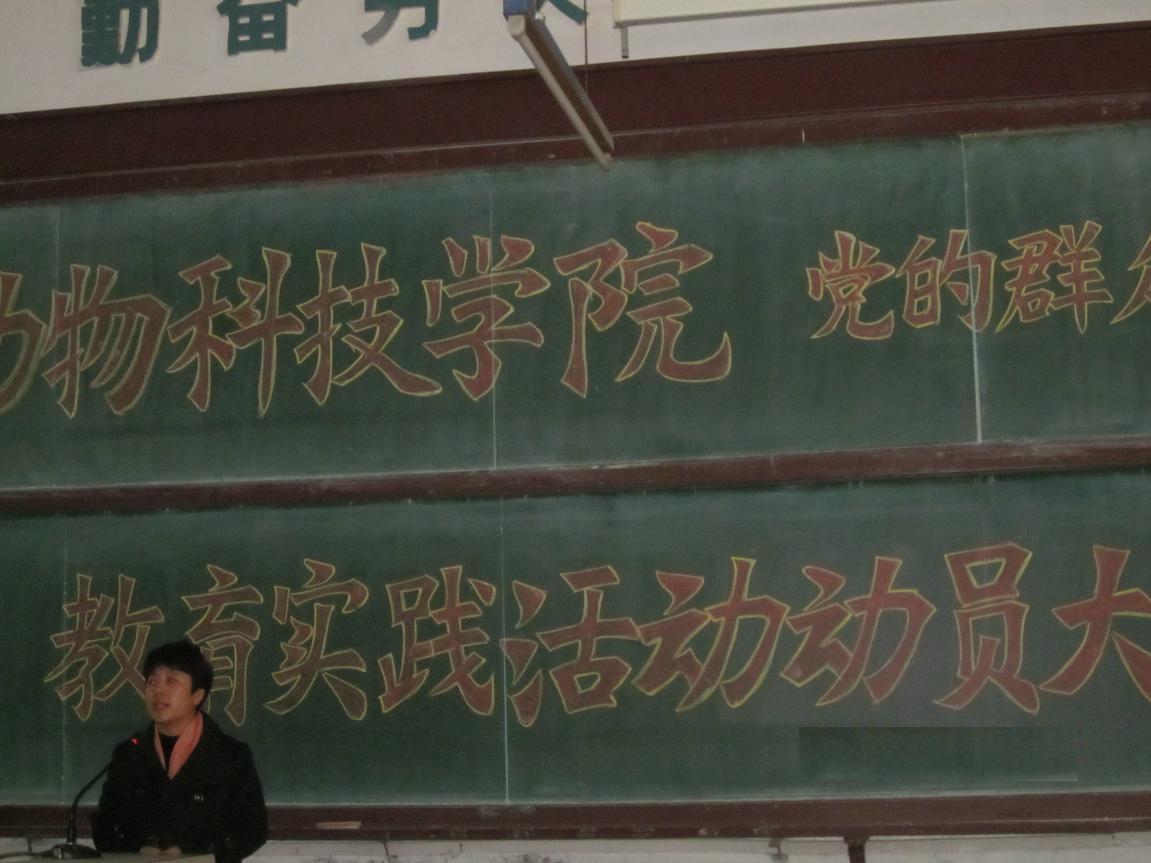 勤奋
动物科技学院 党的群
教育实践活动动员大